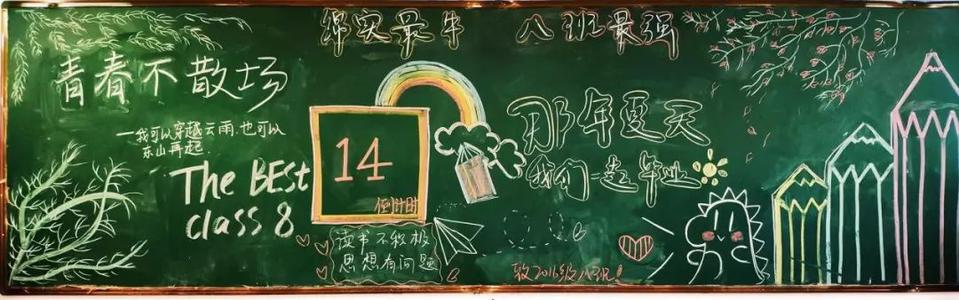 绵实最牛 八班最强
青春不散场
—我可以穿越云雨,也可以
东山再起
The BEst
class 8
14
倒计时
读书不积极
思想有问题
那年夏天
我们一起毕业
致2016级八班!